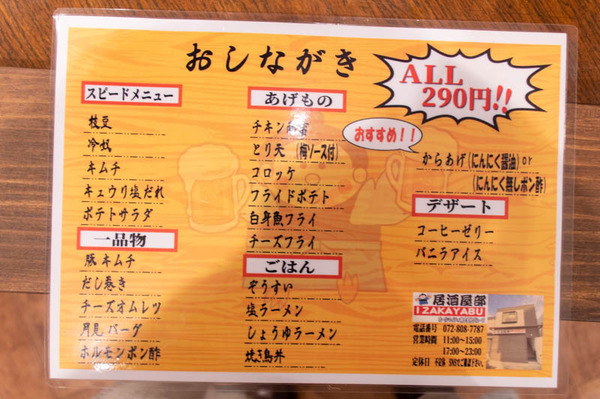 おしながき
ALL
290円!!
スピードメニュー
枝豆
冷奴
キムチ
キュウリ塩だれ
ポテトサラダ
一品物
豚キムチ
だし巻き
チーズオムレツ
月見バーグ
ホルモンポン酢
あげもの
チキン南蛮
とり天 (梅ソース付)
コロッケ
フライドポテト
白身魚フライ
チーズフライ
ごはん
ぞうすい
塩ラーメン
しょうゆラーメン
焼き鳥丼
おすすめ!!
からあげ(にんにく醤油)or
(にんにく無しポン酢)
デザート
コーヒーゼリー
バニラアイス
居酒屋部
IZAKAYABU
電話番号 072-808-7787
営業時間 11:00~15:00
17:00~23:00
定休日 不定休